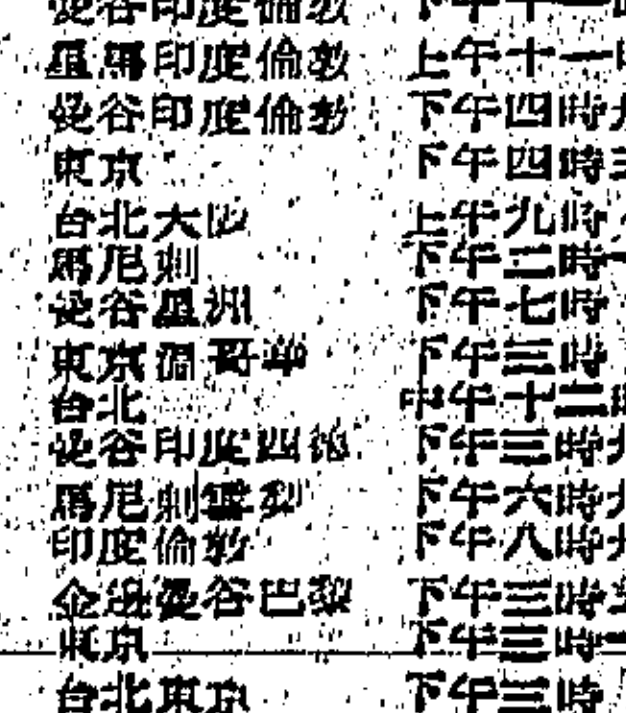 曼谷印度倫敦 下午十一時
星馬印度倫敦 上午十一時
曼谷印度倫敦 下午四時
東京 下午四時
台北大 上午九時
馬尼剌 下午二時
曼谷星洲 下午七時
東京溫哥華 下午三時
台北 中午十二時
曼谷印度 下午三時
馬尼剌雪梨 下午六時
印度倫敦 下午八時
金邊曼谷巴黎 下午三時
東京 下午三時
台北東京 下午三時